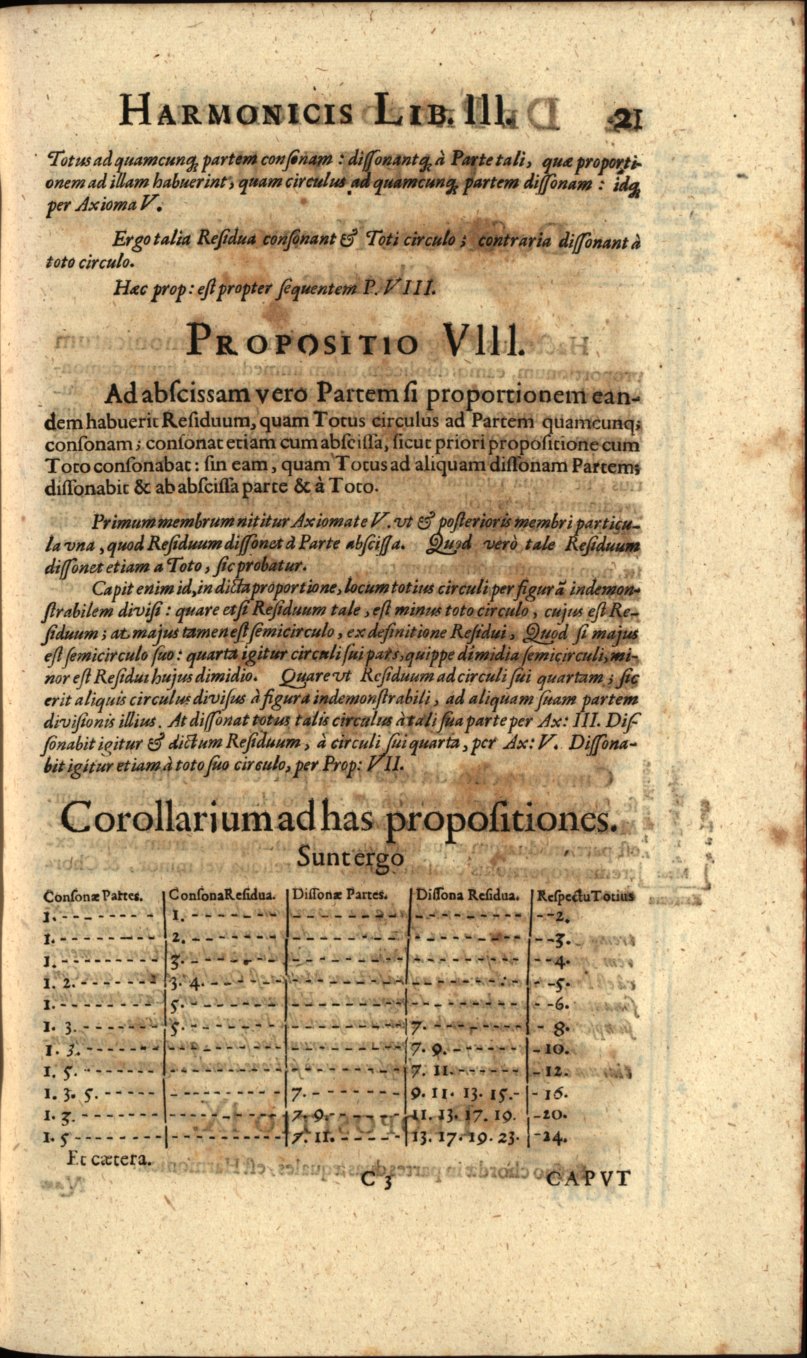 HARMONICIS LIB. III. 21
Totus ad quamcunq; partem conſonam : diſſonantq; à Parte tali, quæ proporti-
onem ad illam habuerint, quam circulus ad quamcunq; partem diſſonam : idq;
per Axioma V.
Ergo talia Reſidua conſonant & Toti circulo ; contraria diſſonant à
toto circulo.
Hæc prop: eſt propter ſequentem P. VIII.
PROPOSITIO VIII.
Ad abſciſſam vero Partem ſi proportionem ean-
dem habuerit Reſiduum, quam Totus circulus ad Partem quamcunq;
conſonam ; conſonat etiam cum abſciſſa, ſicut priori propoſitione cum
Toto conſonabat : ſin eam, quam Totus ad aliquam diſſonam Partem;
diſſonabit & ab abſciſſa parte & à Toto.
Primum membrum nititur Axiomate V. vt & poſterioris membri particu-
la vna, quod Reſiduum diſſonet à Parte abſciſſa. Quod verò tale Reſiduum
diſſonet etiam a Toto, ſic probatur.
Capit enim id, in dicta proportione, locum totius circuli per figurã indemon-
ſtrabilem diviſi : quare etſi Reſiduum tale, eſt minus toto circulo, cujus eſt Re-
ſiduum ; at majus tamen eſt ſemicirculo, ex definitione Reſidui, Quod ſi majus
eſt ſemicirculo ſuo : quarta igitur circuli ſui pars, quippe dimidia ſemicirculi, mi-
nor eſt Reſidui hujus dimidio. Quare vt Reſiduum ad circuli ſui quartam ; ſic
erit aliquis circulus diviſus à figura indemonſtrabili, ad aliquam ſuam partem
diviſionis illius. At diſſonat totus talis circulus à tali ſua parte per Ax: III. Diſ-
ſonabit igitur & dictum Reſiduum, à circuli ſui quarta, per Ax: V. Diſſona-
bit igitur etiam à toto ſuo circulo, per Prop: VII.
Corollarium ad has propoſitiones.
Sunt ergo
Conſonæ Partes. | Conſona Reſidua. | Diſſonæ Partes. | Diſſona Reſidua. | Reſpectu Totius
1. - - - - - - - - | 1. - - - - - - - | - - - - - - - - | - - - - - - - - | - -2.
1. - - - - - - - - | 2. - - - - - - - | - - - - - - - - | - - - - - - - - | - -3.
1. - - - - - - - - | 3. - - - - - - - | - - - - - - - - | - - - - - - - - | - -4.
1. 2. - - - - - - | 3. 4. - - - - - - | - - - - - - - - | - - - - - - - - | - -5.
1. - - - - - - - - | 5. - - - - - - - | - - - - - - - - | - - - - - - - - | - -6.
1. 3. - - - - - - | 5. - - - - - - - | - - - - - - - - | 7. - - - - - - - | - 8.
1. 3. - - - - - - | - - - - - - - - | - - - - - - - - | 7. 9. - - - - - - | - 10.
1. 5. - - - - - - | - - - - - - - - | - - - - - - - - | 7. 11. - - - - - | - 12.
1. 3. 5. - - - - - | - - - - - - - - | 7. - - - - - - - | 9. 11. 13. 15. - | - 16.
1. 3. - - - - - - | - - - - - - - - | 7. 9. - - - - - - | 11. 13. 17. 19. | -20.
1. 5 - - - - - - - | - - - - - - - - | 7. 11. - - - - - | 13. 17. 19. 23. | -24.
Et cætera.
C 3 CAPVT